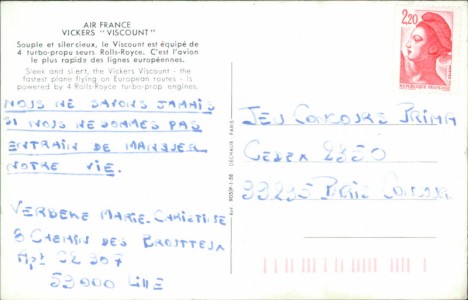 AIR FRANCE
VICKERS "VISCOUNT"
Souple et silencieux, le Viscount est équipé de
4 turbo-propulseurs Rolls-Royce. C'est l'avion
le plus rapide des lignes européennes.
Sleek and silent, the Vickers Viscount - the
fastest plane flying on European routes - is
powered by 4 Rolls-Royce turbo-prop engines.
NOUS NE SAVONS JAMAIS
SI NOUS NE SOMMES PAS
ENTRAIN DE MANQUER
NOTRE VIE.
VERDERE MARIE-CHRISTINE
8 CHEMIN DES
Apt 307
59000 Lille
DÉCHAUX - PARIS
2,20
REPUBLIQUE FRANÇAISE
JEU CONCOURS PRIMA
CEDEX 2350
99235 PARIS CONCOURS